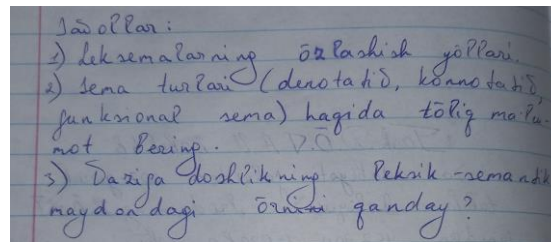 Savollar:
1) Leksemalarning özlashish yöllari.
2) Sema turlari (denotativ, konnotativ,
funksional sema) haqida töliq ma'lu-
mot bering.
3) Darajadoshlikning leksik-semantik
maydondagi örnini qanday?